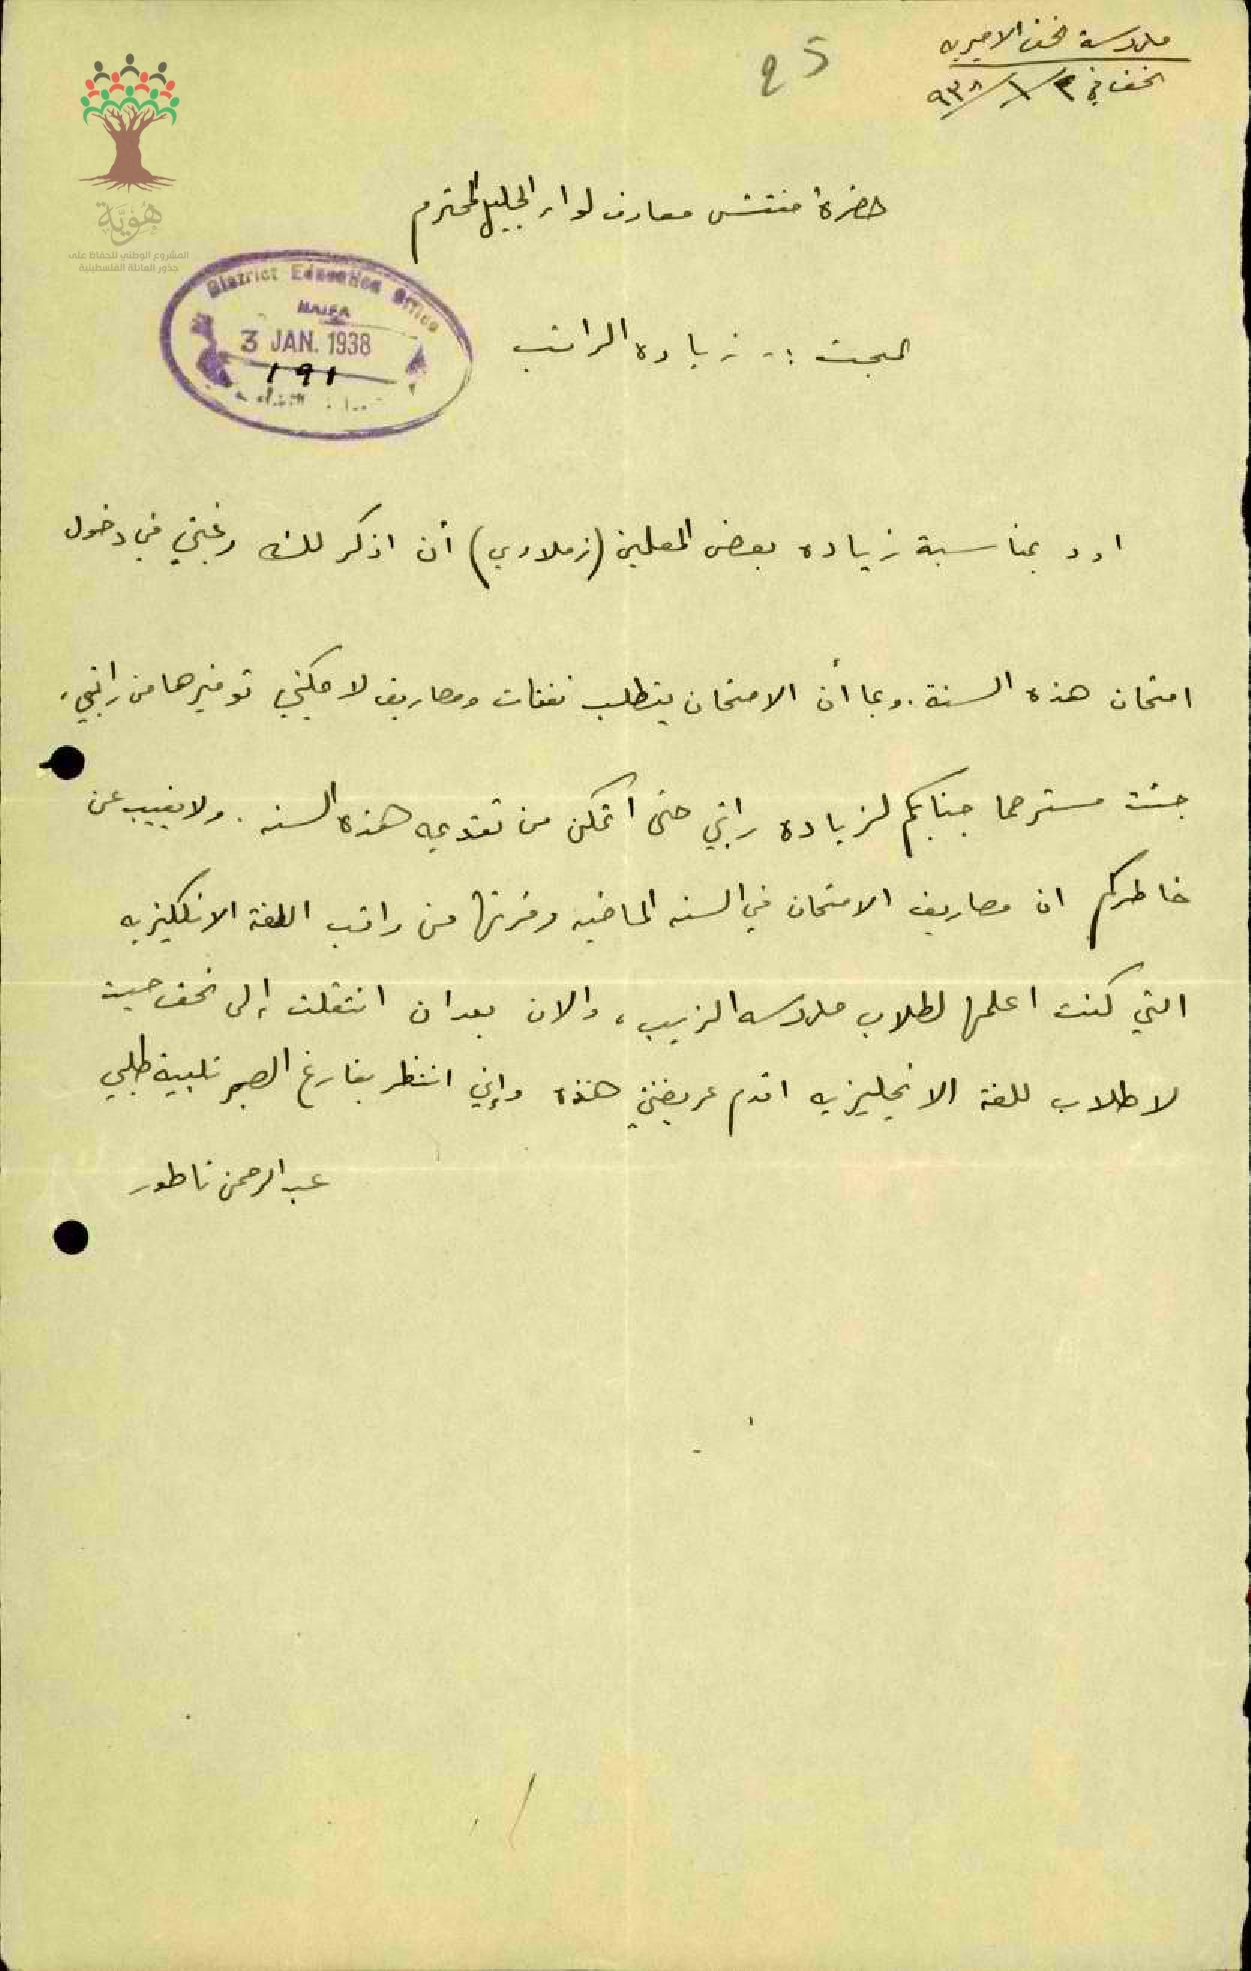 مدرسة نحف الاميريه
نحف في ٢/١/٩٣٨
25
حضرة مفتش معارف لواء الجليل المحترم
هُوِيَّة
المشروع الوطني للحفاظ على
جذور العائلة الفلسطينية
District Education Office
HAIFA
3 JAN. 1938
١٩١
المبحث :- زياده الراتب
اود بمناسبة زياده بعض المعلمين (زملاءي) أن اذكر لك رغبتي في دخول
امتحان هذه السنة. وبما أن الامتحان يتطلب نفقات ومصاريف لا يمكنني توفيرها من راتبي،
جئت مسترحما جنابكم لزياده راتبي حتى أتمكن من تقديمه هذه السنه. ولا يغيب عن
خاطركم ان مصاريف الامتحان في السنه الماضيه وفرتها من راتب اللغة الانكليزيه
التي كنت اعلمها لطلاب مدرسه الزيب، والان بعد ان انتقلت إلى نحف حيث
لا طلاب للغة الانجليزيه اقدم عريضتي هذه وإني انتظر بفارغ الصبر تلبية طلبي
عبد الرحمن ناطور